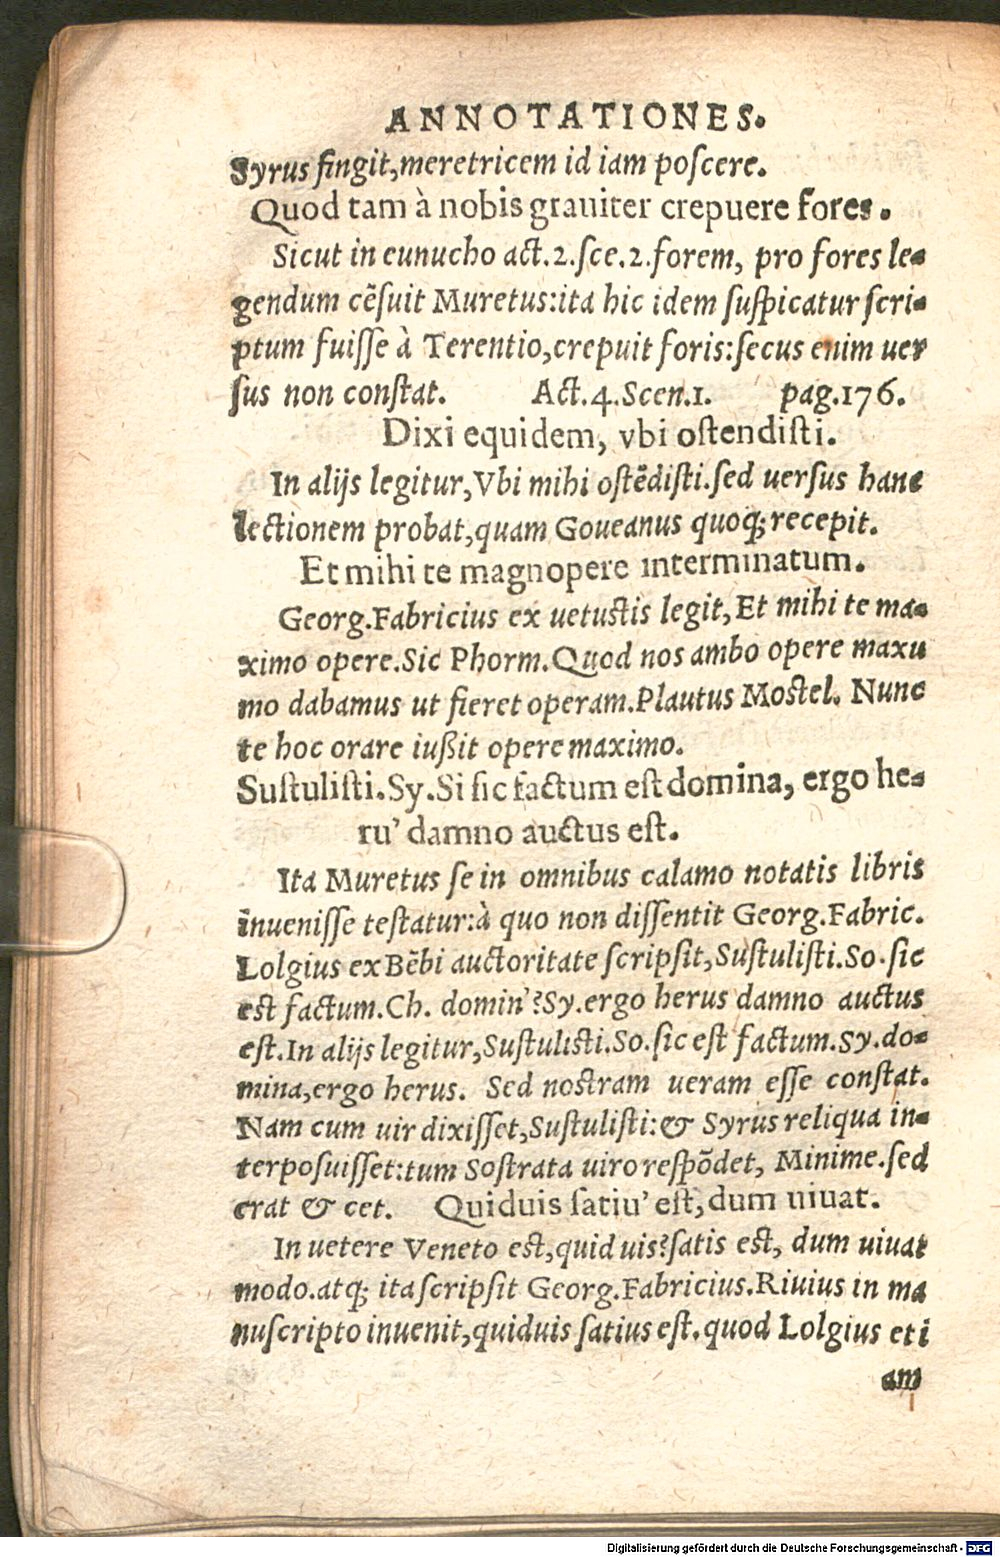 ANNOTATIONES.
Syrus fingit, meretricem id iam poscere.
Quod tam à nobis grauiter crepuere fores.
Sicut in eunucho act.2.sce.2.forem, pro fores le-
gendum cẽsuit Muretus:ita hic idem suspicatur scri-
ptum fuisse à Terentio,crepuit foris:secus enim uer
sus non constat. Act.4.Scen.1. pag.176.
Dixi equidem, vbi ostendisti.
In alijs legitur, Vbi mihi ostẽdisti.sed uersus hanc
lectionem probat,quam Goueanus quoq; recepit.
Et mihi te magnopere interminatum.
Georg.Fabricius ex uetustis legit, Et mihi te ma-
ximo opere.Sic Phorm.Quod nos ambo opere maxu
mo dabamus ut fieret operam.Plautus Mostel. Nunc
te hoc orare iußit opere maximo.
Sustulisti.Sy.Si sic factum est domina, ergo he-
ru' damno auctus est.
Ita Muretus se in omnibus calamo notatis libris
inuenisse testatur:à quo non dissentit Georg.Fabric.
Lolgius ex Bẽbi auctoritate scripsit, Sustulisti.So.sic
est factum.Ch. domin'?Sy.ergo herus damno auctus
est.In alijs legitur,Sustulisti.So.sic est factum.Sy.do-
mina,ergo herus. Sed nostram ueram esse constat.
Nam cum uir dixisset,Sustulisti:& Syrus reliqua in-
terposuisset:tum Sostrata uiro respõdet, Minime.sed
erat & cet. Quiduis satiu' est, dum uiuat.
In uetere Veneto est,quid uis?satis est, dum uiuat
modo.atq; ita scripsit Georg.Fabricius.Riuius in ma
nuscripto inuenit,quiduis satius est.quod Lolgius eti
am
Digitalisierung gefördert durch die Deutsche Forschungsgemeinschaft - DFG